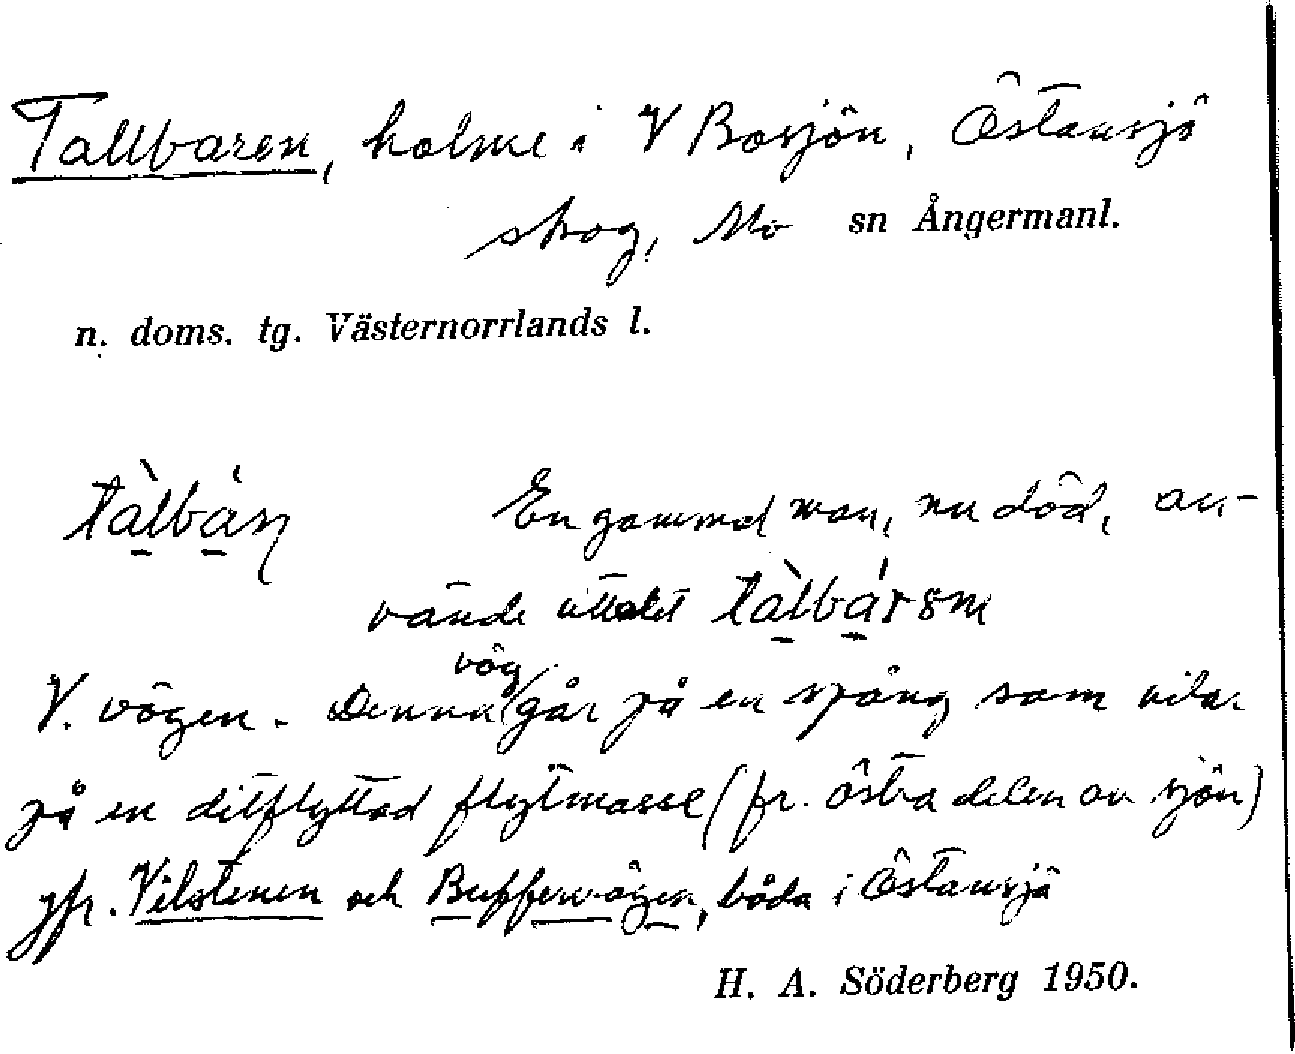 Tallbaren, holme i V Bosjön, Östansjö
skog, Mo sn Ångermanl.
n. doms. tg. Västernorrlands l.
tàlbáṇ En gammal man, nu död, an-
vände uttalet tàlbárəm
väg
V. vägen. Denna går på en spång som vilar
på en ditflyttad flytmasse (fr. östra delen av sjön)
jfr. Vilstenen och Buffervägen, båda i Östansjö
H. A. Söderberg 1950.